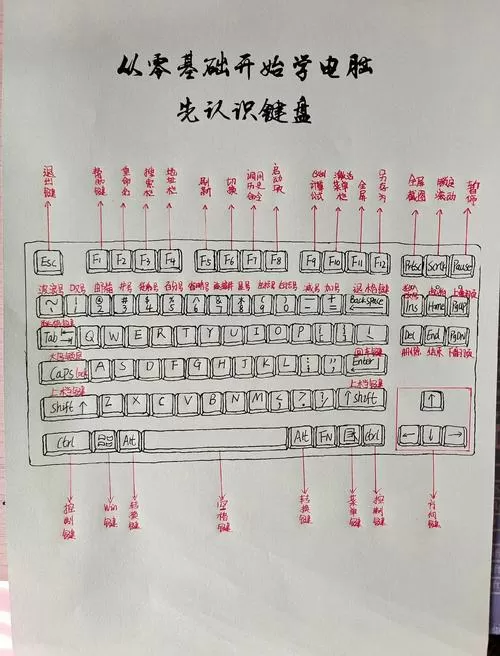 从零基础开始学电脑
先认识键盘
退出键 帮助键 重命名 搜索栏 地址栏 刷新 切换 调用历史命令 启动项 全屏 另存为 全屏截图 锁定滚动 暂停
Esc F1 F2 F3 F4 F5 F6 F7 F8 F9 F10 F11 F12 Prtsc Scrlk Pause
波浪号 邮箱 井号 百分号 星号 减号 加号 退格键
~ ! @ 2 # 3 $ 4 % 5 ^ 6 & 7 * 8 ( 9 ) 0 — - + = Backspace Ins Home PgUp
Tab Q W E R T Y U I O P Del End PgDn
删除 结束 下翻页
大写锁定 回车键
Caps lock A S D F G H J K L Enter
上档键 上档键
shift ↑ Z X C V B N M ↑ shift ↑
Ctrl Alt Alt FN Ctrl ← ↓ →
控制键 Win键 转换键 空格键 转换键 菜单键 控制键 方向键